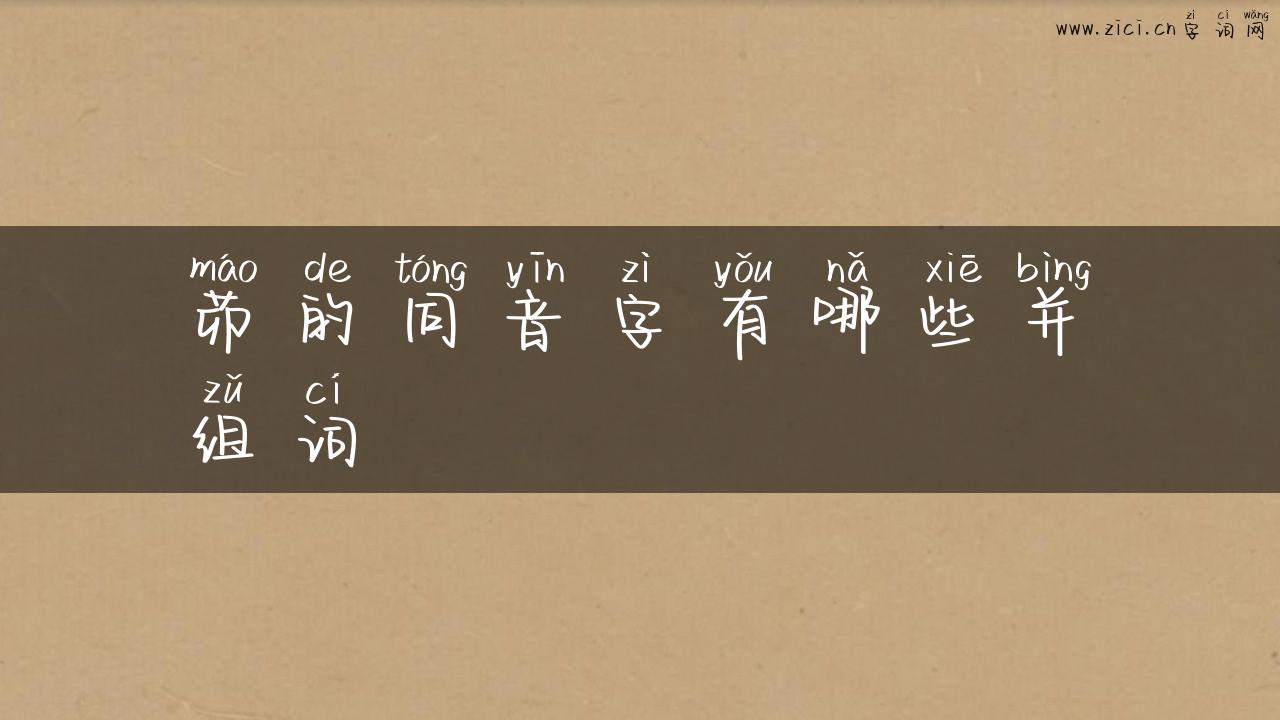 www.zici.cn 字词网
zì cí wǎng
máo de tóng yīn zì yǒu nǎ xiē bìng
茆的同音字有哪些并
zǔ cí
组词